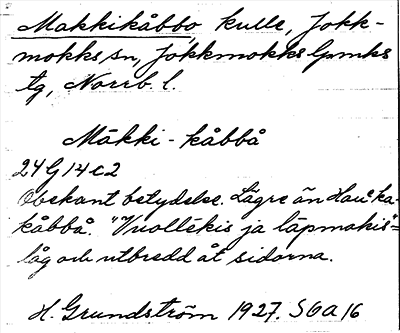 Makkikåbbo, kulle, Jokk-
mokks sn, Jokkmokks lpmks
tg, Norrb. l.
Mākki-kåbbå
24G14c2
Obekant betydelse. Lägre än Hauᶜka-
kåbbå. "Vuollēkis ja lāpmakis"=
låg och utbredd åt sidorna.
H. Grundström 1927. SOA 16